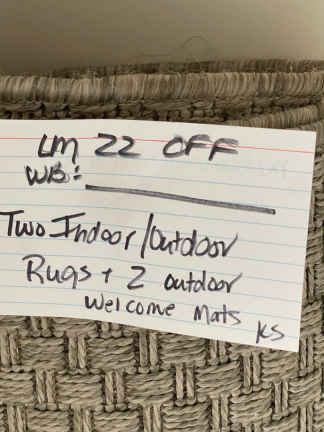 LM 22 OFF
WB:
Two Indoor/Outdoor
Rugs + 2 outdoor
Welcome Mats
KS